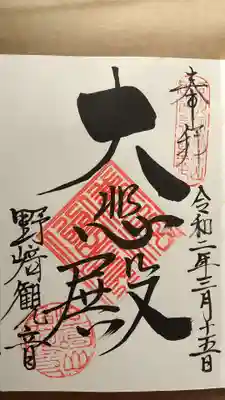 奉拝
令和二年三月十五日
大悲殿
野﨑観音